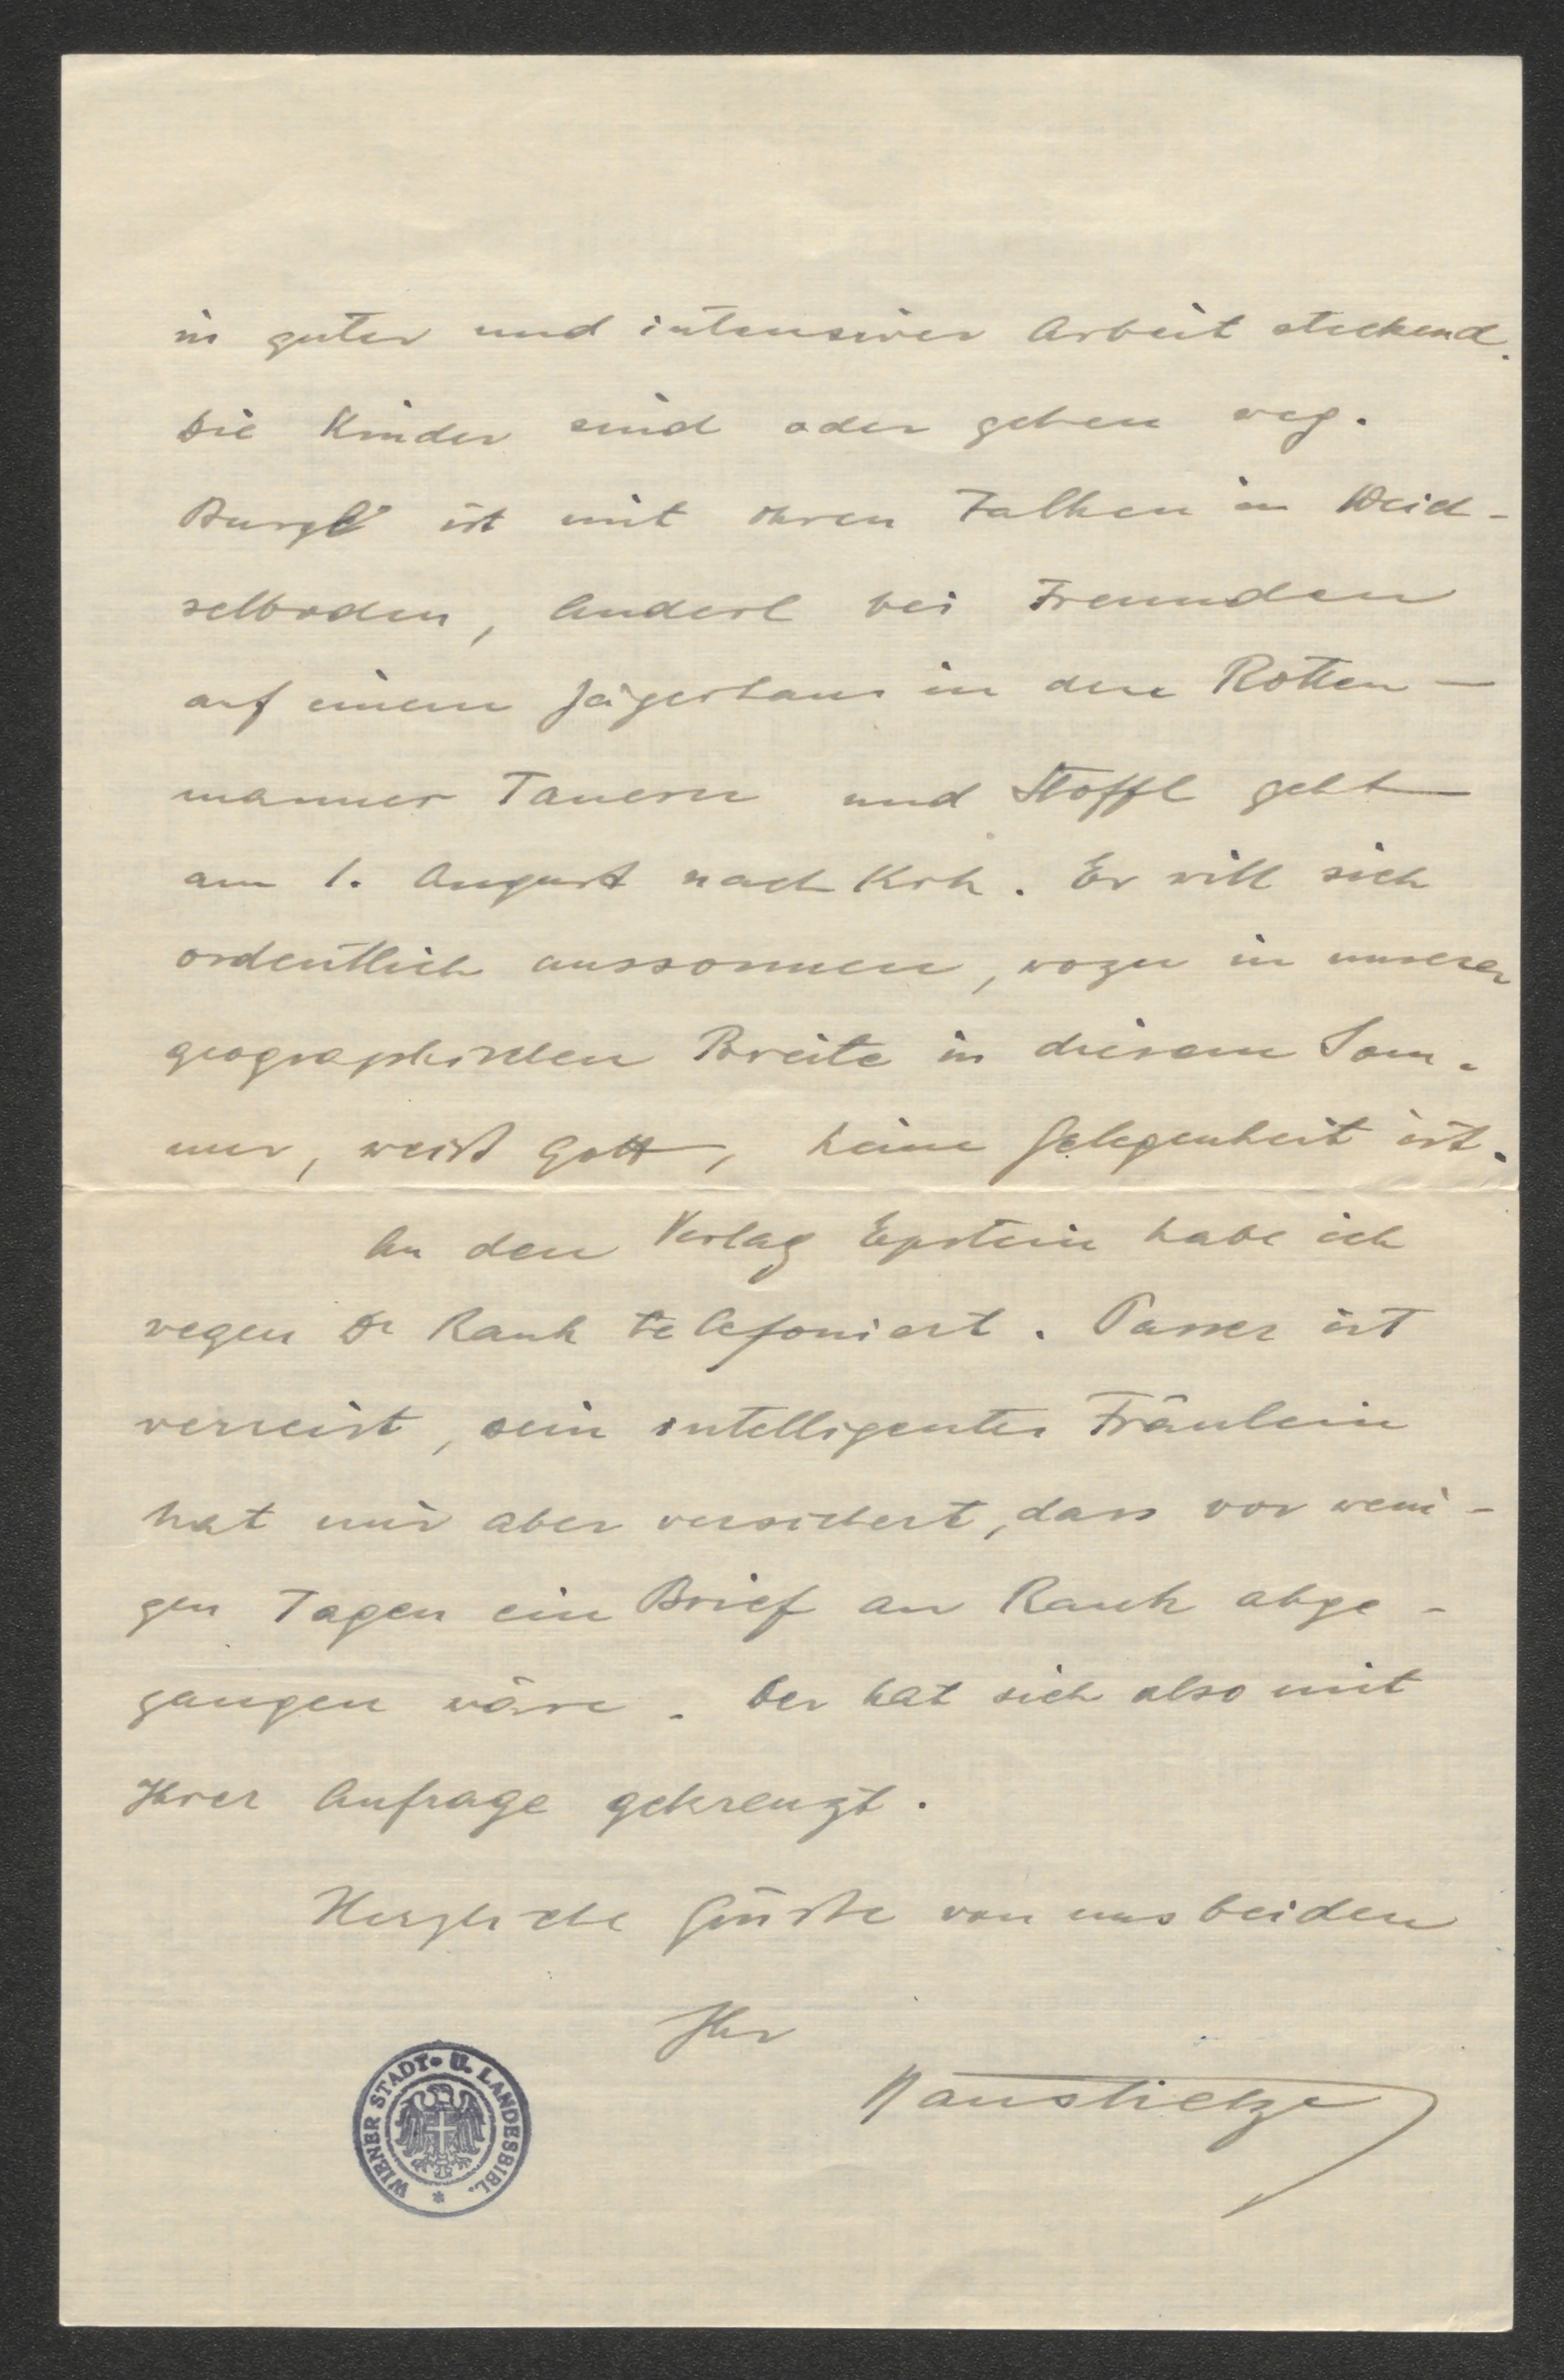 in guter und intensiver Arbeit steckend.
Die Kinder sind oder gehen weg.
Burgl ist mit ihren Falken in Weid-
selboden, Anderl bei Freunden
auf einem Jägerhaus in den Rotten-
manner Tauern und Stoffl geht
am 1. August nach Krk. Er will sich
ordentlich aussonnen, wozu in unserer
geographischen Breite in diesem Som-
mer, weiß Gott, keine Gelegenheit ist.
An den Verlag Epstein habe ich
wegen Dr Rank telefoniert. Passer ist
verreist, sein intelligentes Fräulein
hat mir aber versichert, dass vor weni-
gen Tagen ein Brief an Rank abge-
gangen wäre. Der hat sich also mit
Ihrer Anfrage gekreuzt.
Herzliche Grüße von uns beiden
Ihr
Hanstietze
WIENER STADT- U. LANDESBIBL. *